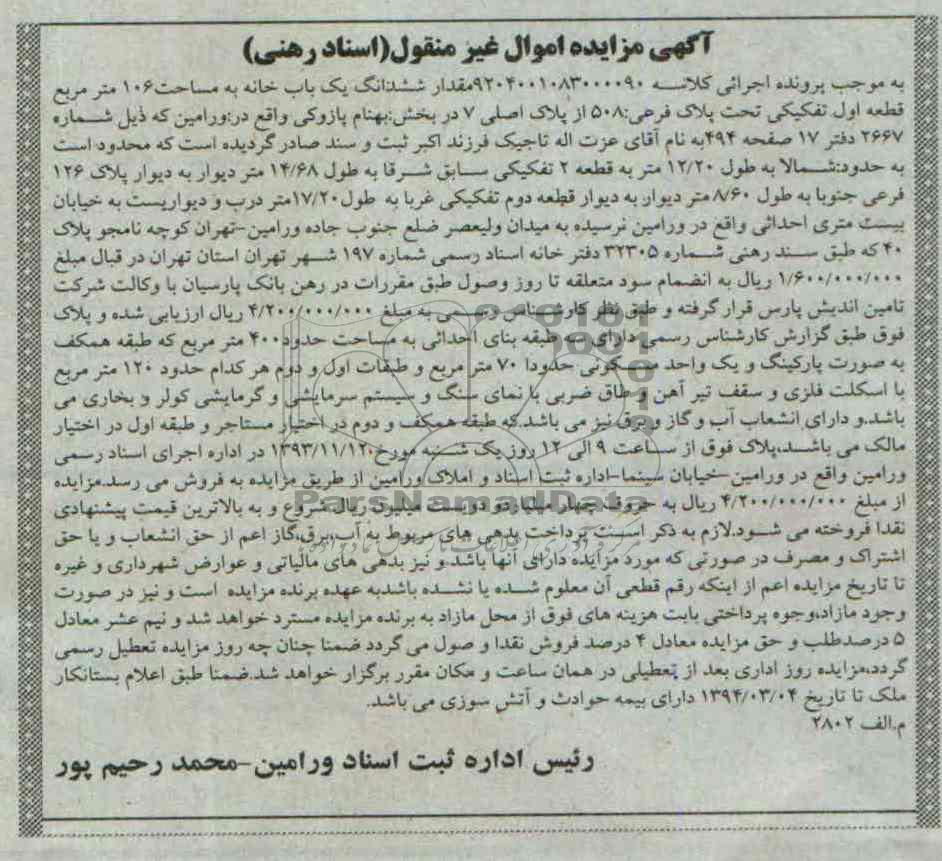 آگهی مزایده اموال غیر منقول(اسناد رهنی)
به موجب پرونده اجرائی کلاسه ۹۲۰۴۰۰۱۰۸۳۰۰۰۰۹۰مقدار ششدانگ یک باب خانه به مساحت۱۰۶ متر مربع
قطعه اول تفکیکی تحت پلاک فرعی:۵۰۸ از پلاک اصلی ۷ در بخش:بهنام پازوکی واقع در:ورامین که ذیل شماره
۲۶۶۷ دفتر ۱۷ صفحه ۴۹۴به نام آقای عزت اله تاجیک فرزند اکبر ثبت و سند صادر گردیده است که محدود است
به حدود:شمالا به طول ۱۲/۲۰ متر به قطعه ۲ تفکیکی سابق شرقا به طول ۱۴/۶۸ متر دیوار به دیوار پلاک ۱۲۶
فرعی جنوبا به طول ۸/۶۰ متر دیوار به دیوار قطعه دوم تفکیکی غربا به طول۱۷/۲۰متر درب و دیواریست به خیابان
بیست متری احداثی واقع در ورامین نرسیده به میدان ولیعصر ضلع جنوب جاده ورامین-تهران کوچه نامجو پلاک
۴۰ که طبق سند رهنی شماره ۳۲۳۰۵ دفتر خانه اسناد رسمی شماره ۱۹۷ شهر تهران استان تهران در قبال مبلغ
۱/۶۰۰/۰۰۰/۰۰۰ ریال به انضمام سود متعلقه تا روز وصول طبق مقررات در رهن بانک پارسیان با وکالت شرکت
تامین اندیش پارس قرار گرفته و طبق نظر کارشناس رسمی به مبلغ ۴/۲۰۰/۰۰۰/۰۰۰ ریال ارزیابی شده و پلاک
فوق طبق گزارش کارشناس رسمی دارای سه طبقه بنای احداثی به مساحت حدود۴۰۰ متر مربع که طبقه همکف
به صورت پارکینگ و یک واحد مسکونی حدودا ۷۰ متر مربع و طبقات اول و دوم هر کدام حدود ۱۲۰ متر مربع
با اسکلت فلزی و سقف تیر آهن و طاق ضربی با نمای سنگ و سیستم سرمایشی و گرمایشی کولر و بخاری می
باشد.و دارای انشعاب آب و گاز و برق نیز می باشد.که طبقه همکف و دوم در اختیار مستاجر و طبقه اول در اختیار
مالک می باشد،پلاک فوق از ساعت ۹ الی ۱۲ روز یک شنبه مورخ۱۳۹۳/۱۱/۱۲ در اداره اجرای اسناد رسمی
ورامین واقع در ورامین-خیابان سینما-اداره ثبت اسناد و املاک ورامین از طریق مزایده به فروش می رسد.مزایده
از مبلغ ۴/۲۰۰/۰۰۰/۰۰۰ ریال به حروف چهار میلیارد و دویست میلیون ریال شروع و به بالاترین قیمت پیشنهادی
نقدا فروخته می شود.لازم به ذکر است پرداخت بدهی های مربوط به آب،برق،گاز اعم از حق انشعاب و یا حق
اشتراک و مصرف در صورتی که مورد مزایده دارای آنها باشد.و نیز بدهی های مالیاتی و عوارض شهرداری و غیره
تا تاریخ مزایده اعم از اینکه رقم قطعی آن معلوم شده یا نشده باشدبه عهده برنده مزایده است و نیز در صورت
وجود مازاد،وجوه پرداختی بابت هزینه های فوق از محل مازاد به برنده مزایده مسترد خواهد شد و نیم عشر معادل
۵ درصدطلب و حق مزایده معادل ۴ درصد فروش نقدا و صول می گردد ضمنا چنان چه روز مزایده تعطیل رسمی
گردد،مزایده روز اداری بعد از تعطیلی در همان ساعت و مکان مقرر برگزار خواهد شد.ضمنا طبق اعلام بستانکار
ملک تا تاریخ ۱۳۹۴/۰۳/۰۴ دارای بیمه حوادث و آتش سوزی می باشد.
م.الف ۲۸۰۲
رئیس اداره ثبت اسناد ورامین-محمد رحیم پور
ParsNamadData